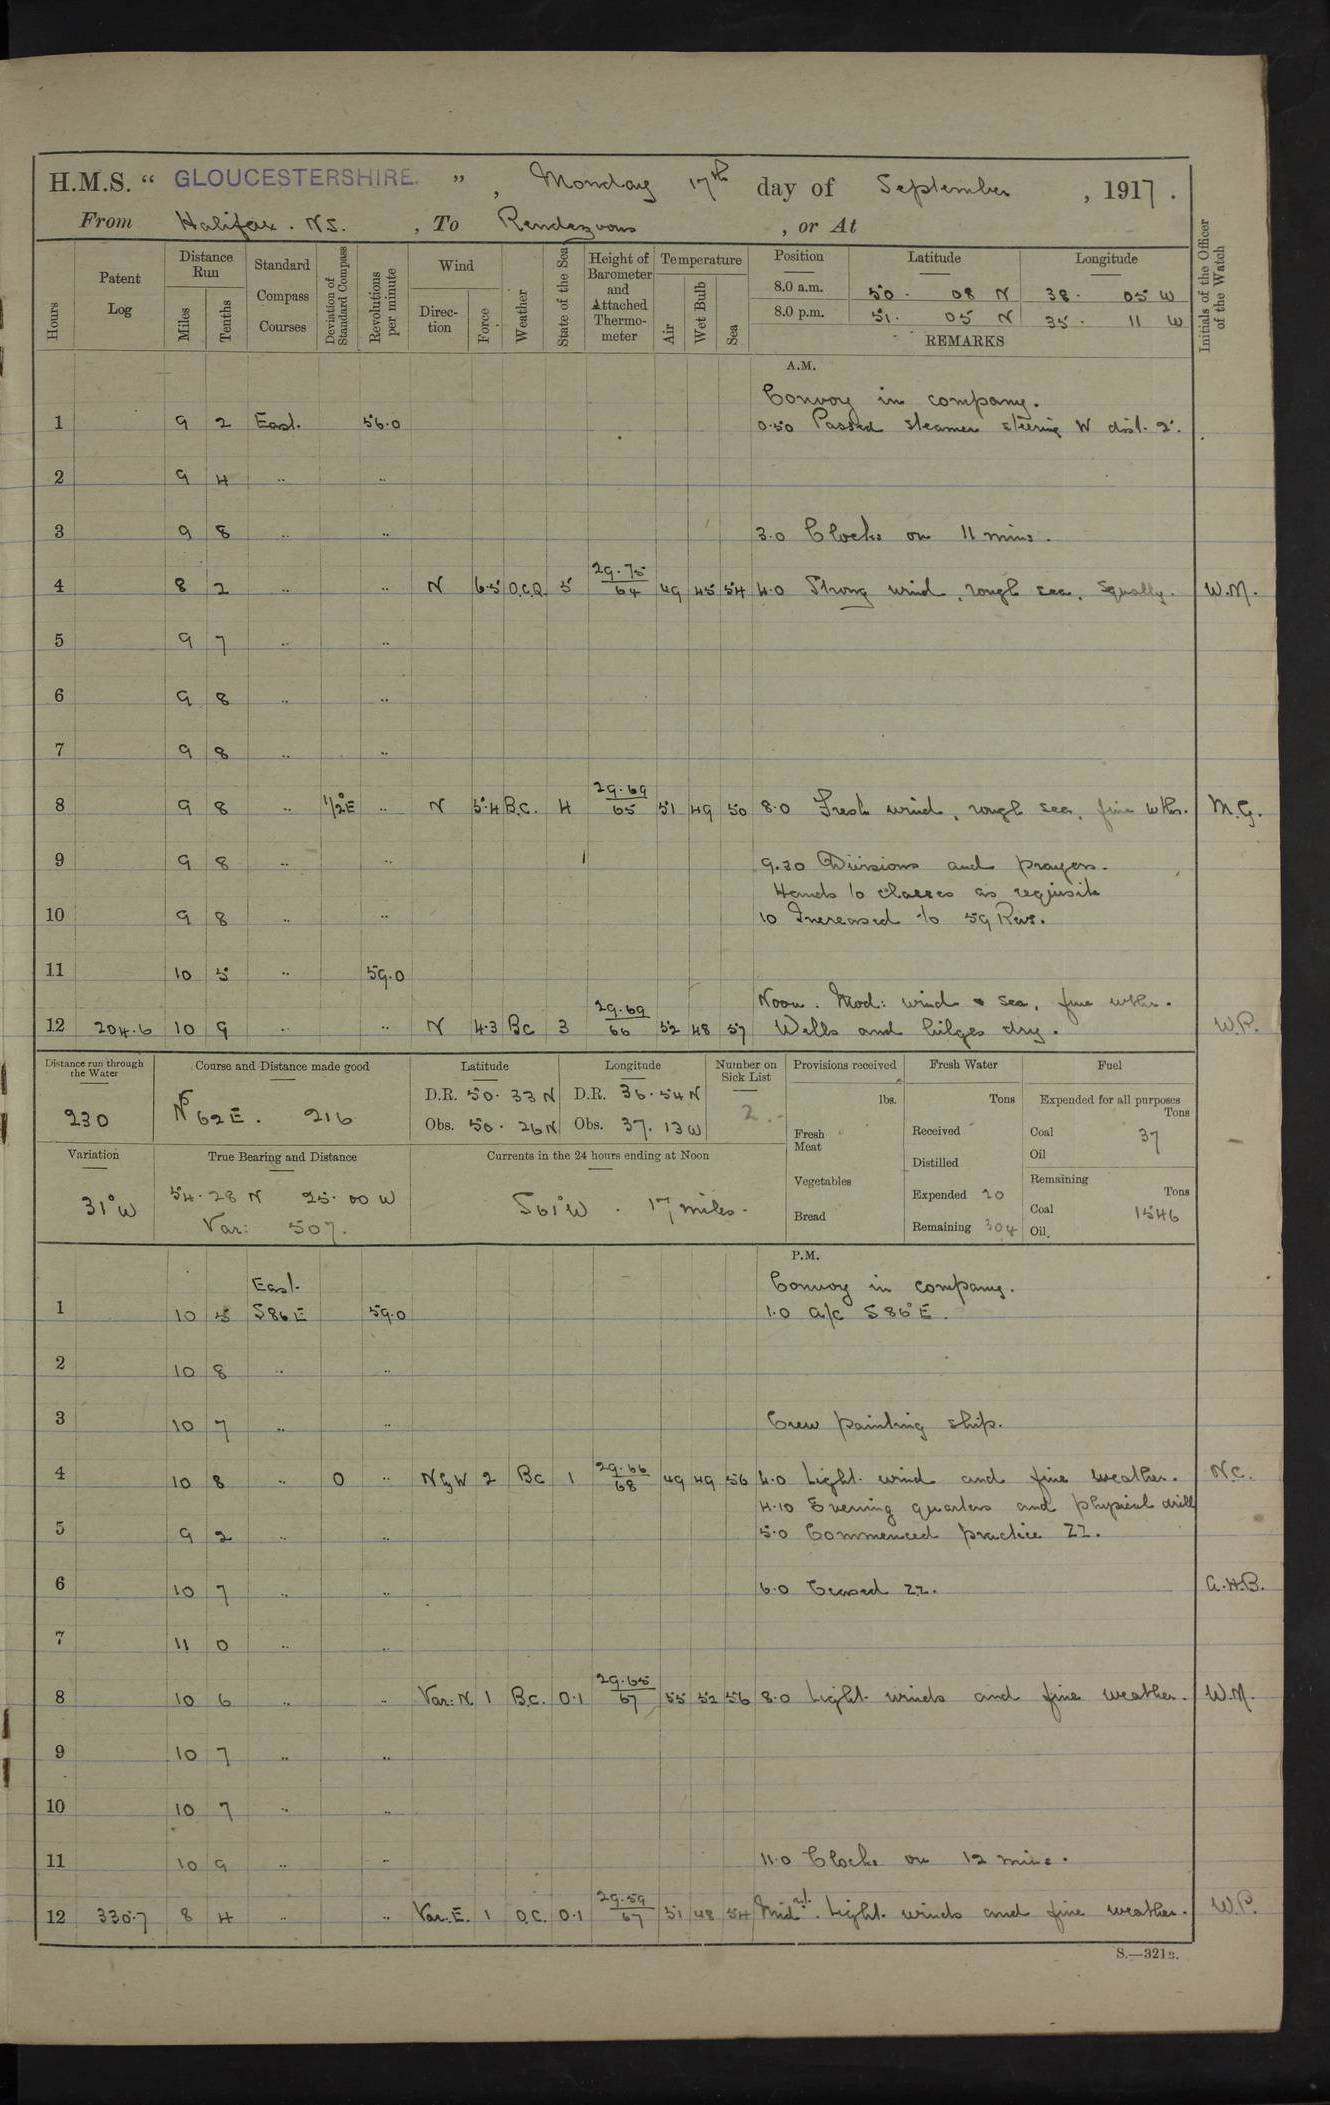 H.M.S. “ GLOUCESTERSHIRE. ” , Monday 17th day of September , 1917 .
From Halifax . NS. , To Rendezvous , or At
Hours Patent Log Distance Run Miles Tenths Standard Compass Courses Deviation of Standard Compass Revolutions per minute Wind Direc-tion Force Weather State of the Sea Height of Barometer and Attached Thermo-meter Temperature Air Wet Bulb Sea Position Latitude Longitude Initials of the Officer of the Watch
8.0 a.m. 50 . 08 N 38 . 05 W
8.0 p.m. 51 . 05 N 35 . 11 W
REMARKS
A.M.
Convoy in company.
1 9 2 East. 56.0 0.50 Passed steamer steering W dist. 2'.
2 9 4 .. ..
3 9 8 .. .. 3.0 Clocks on 11 mins.
4 8 2 .. .. N 6.5 O.C.Q. 5 29.75 64 49 45 54 4.0 Strong wind, rough sea, squally. W.M.
5 9 7 .. ..
6 9 8 .. ..
7 9 8 .. ..
8 9 8 .. 1/2°E .. N 5.4 B.C. 4 29.69 65 51 49 50 8.0 Fresh wind, rough sea, fine wthr. M.G.
9 9 8 .. .. 9.30 Divisions and prayers.
Hands to classes as requisite
10 9 8 .. .. 10 Increased to 59 Revs.
11 10 5 .. 59.0
Noon. Mod: wind & sea, fine wthr.
12 204.6 10 9 .. .. N 4.3 Bc 3 29.69 66 52 48 57 Wells and bilges dry. W.P.
Distance run through the Water Course and Distance made good Latitude Longitude Number on Sick List Provisions received Fresh Water Fuel
230 N 62 E. 216 D.R. 50. 33 N D.R. 36. 54 N 2. lbs. Tons Expended for all purposes Tons
Obs. 50. 26 N Obs. 37. 13 W Fresh Meat Received Coal 37
Oil
Variation True Bearing and Distance Currents in the 24 hours ending at Noon Distilled
31° W 54.28 N 25.00 W S 61° W . 17 miles. Vegetables Expended 20 Remaining Tons
Var: 507. Bread Remaining 304 Coal 1546
Oil.
P.M.
East. Convoy in company.
1 10 5 S 86 E 59.0 1.0 a/c S 86° E.
2 10 8 .. ..
3 10 7 .. .. Crew painting ship.
4 10 8 .. 0 .. N by W 2 Bc 1 29.66 68 49 49 56 4.0 Light wind and fine weather. N.C.
4.10 Evening quarters and physical drill
5 9 2 .. .. 5.0 Commenced practice ZZ.
6 10 7 .. .. 6.0 Ceased ZZ. A.H.B.
7 11 0 .. ..
8 10 6 .. .. Var: N 1 B.C. 0.1 29.65 67 55 52 56 8.0 Light winds and fine weather. W.M.
9 10 7 .. ..
10 10 7 .. ..
11 10 9 .. .. 11.0 Clocks on 12 mins.
12 330.7 8 4 .. .. Var. E. 1 O.C. 0.1 29.59 67 51 48 54 Midnt. Light winds and fine weather. W.P.
S.—321B.